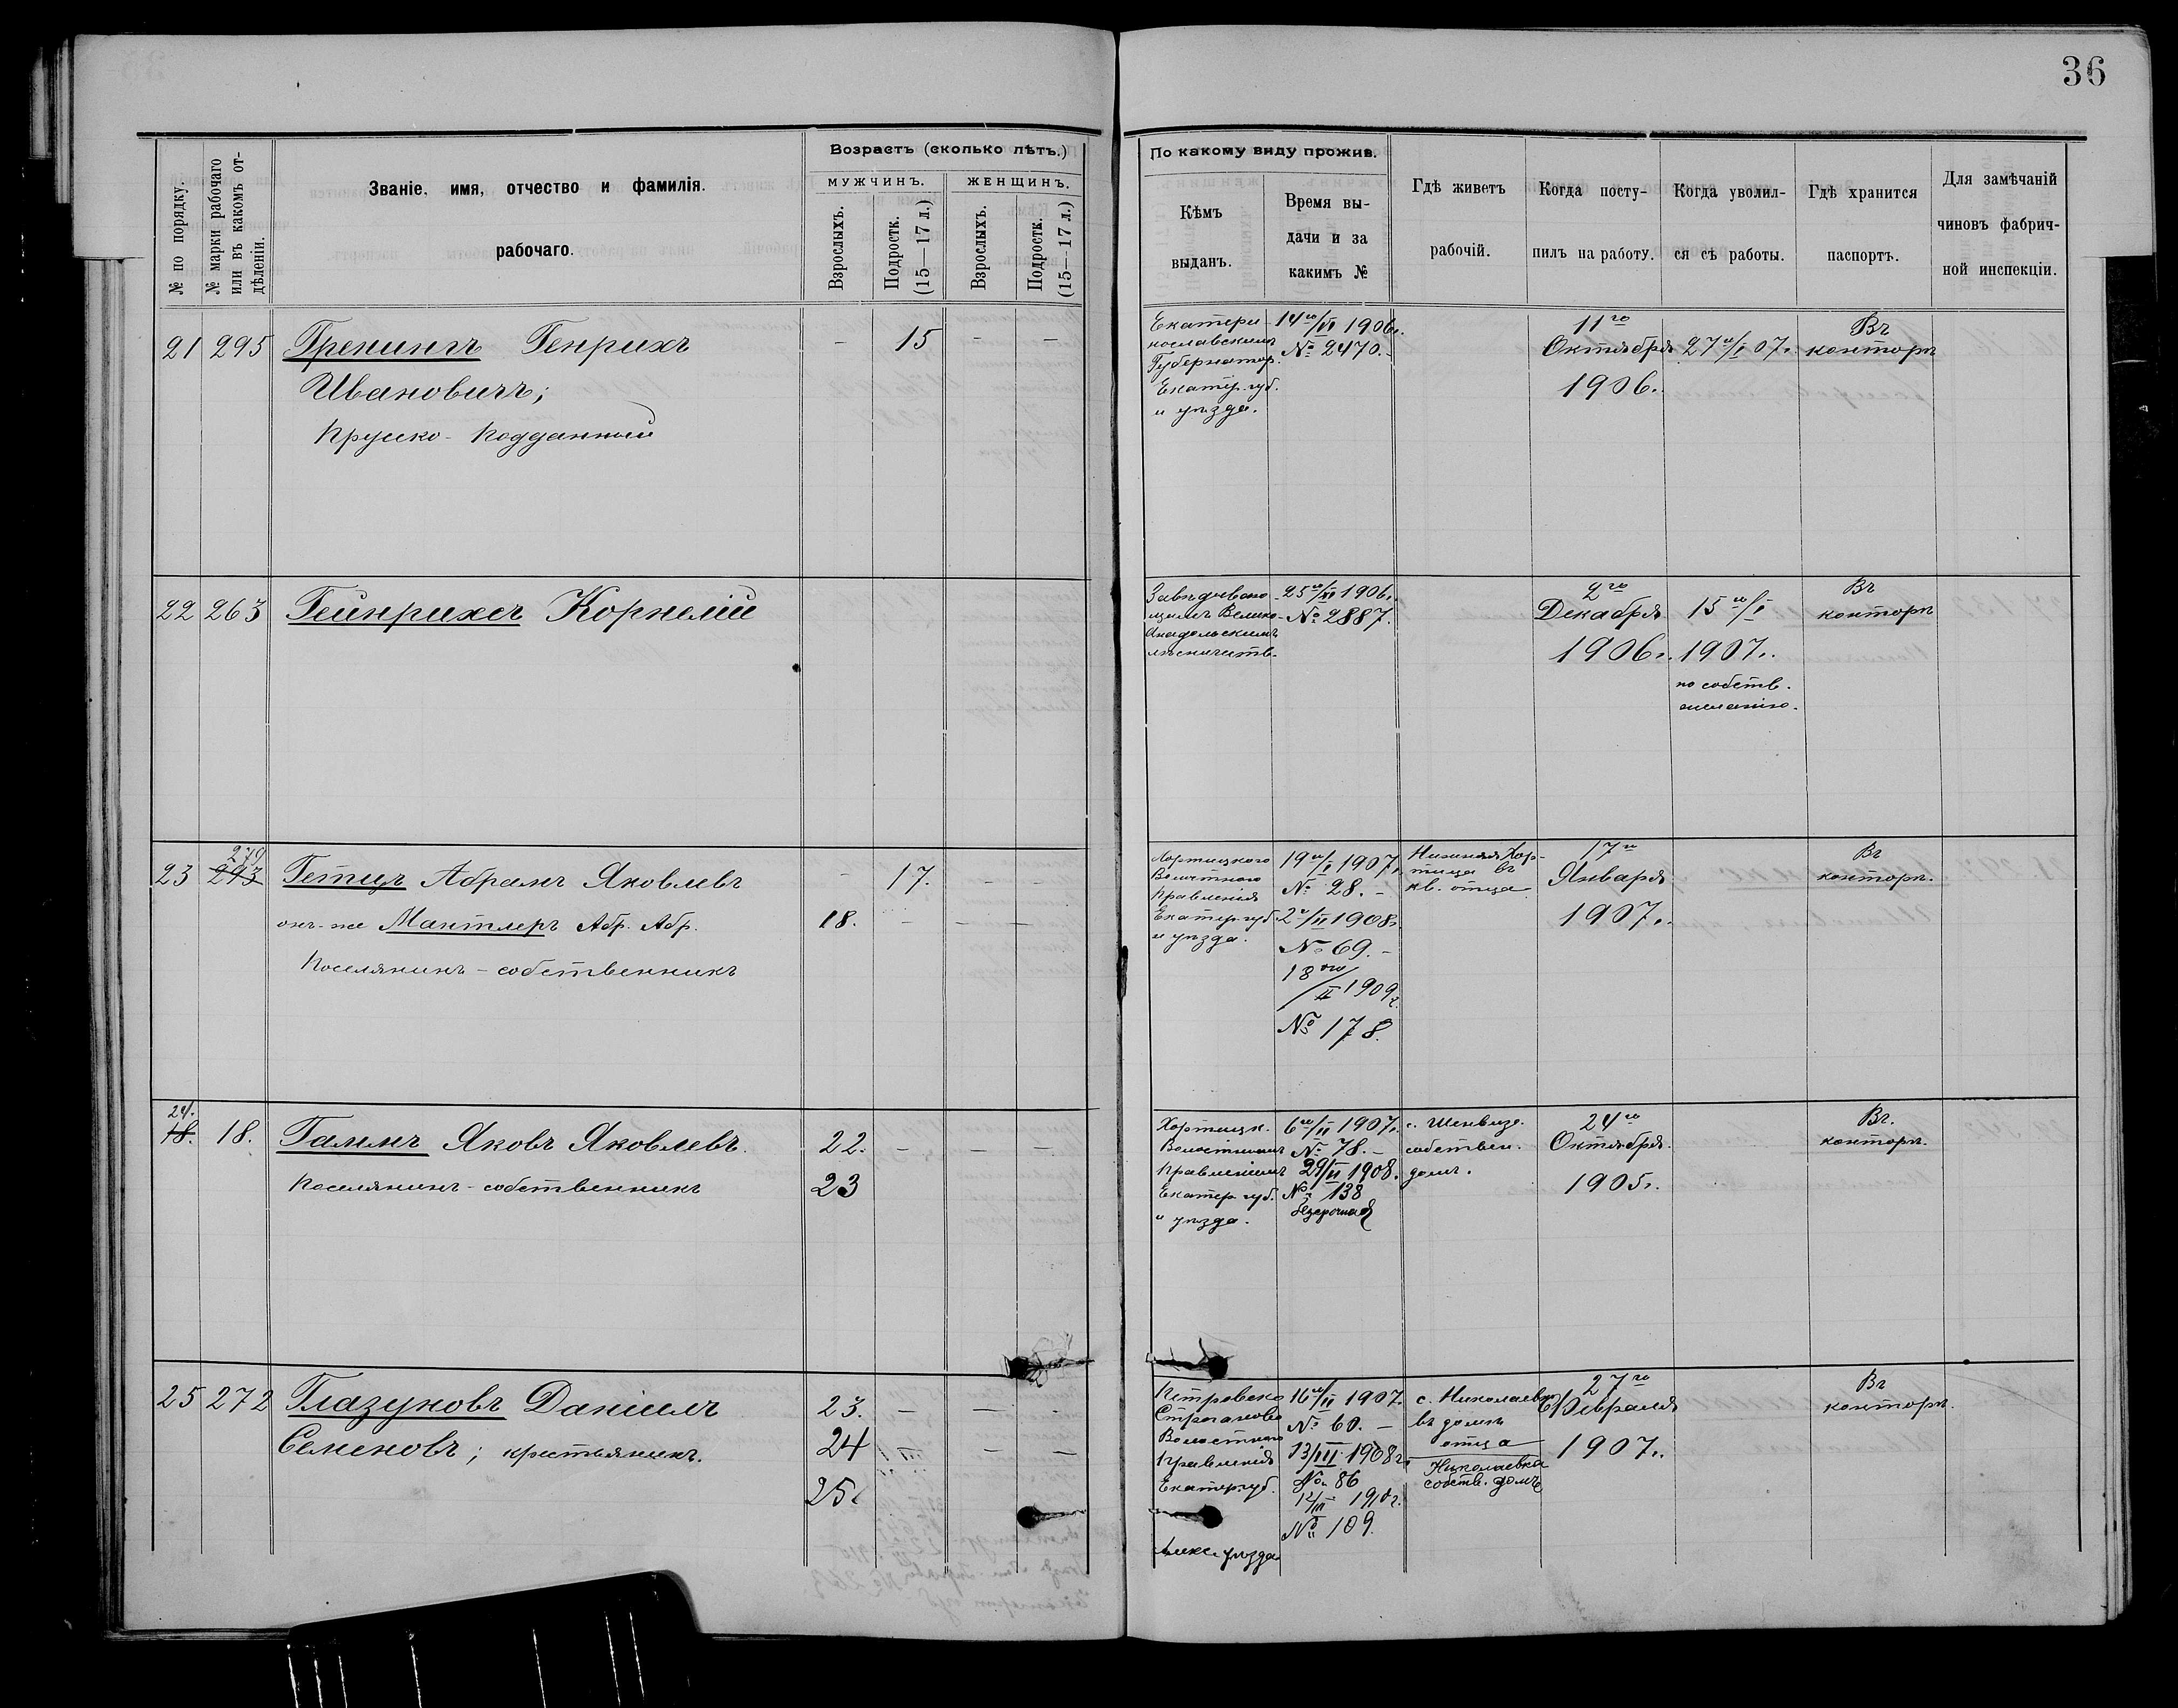 36
№ по порядку.
№ марки рабочаго
или въ какомъ от-
дѣленіи.
Званіе, имя, отчество и фамилія.
рабочаго.
Возрастъ (сколько лѣтъ.)
МУЖЧИНЪ.
ЖЕНЩИНЪ.
Взрослыхъ.
Подростк.
(15—17 л.)
Взрослыхъ.
Подростк.
(15—17 л.)
По какому виду прожив.
Кѣмъ
выданъ.
Время вы-
дачи и за
какимъ №
Гдѣ живетъ
рабочій.
Когда посту-
пилъ на работу.
Когда уволил-
ся съ работы.
Гдѣ хранится
паспортъ.
Для замѣчаній
чиновъ фабрич-
ной инспекціи.
21 295 Гренингъ Генрихъ
Ивановичъ;
Прусско-Подданный
— 15 — —
Екатери-
нославскимъ
Губернатор.
Екатер. губ.
и уѣзда.
14го/VI 1906г.
№ 2470.-
11го
Октября
1906г.
27го/I 07г.
Въ
конторѣ
22 263 Гейнрихсъ Корнелій
Завѣдываю-
щимъ Велико-
Анадольскимъ
лѣсничеств.
25го/XI 1906г.
№ 2887.
2го
Декабря
1906г.
15го/I
1907г.
по собств.
желанію.
Въ
конторѣ
23 279
293 Гетцъ Абрамъ Яковлевъ
онъ-же Мантлеръ Абр. Абр.
Поселянинъ-собственникъ
— 17. — —
18. — — —
Хортицкого
Волостного
Правленія
Екатер. губ.
и уѣзда.
19го/I 1907г.
№ 28.-
2го/II 1908г.
№ 69.-
18го
/II 1909г.
№ 178.
Нижняя Хор-
тица въ
кв. отца
17го
Января
1907г.
Въ
конторѣ.
24.
18. 18. Гаммъ Яковъ Яковлевъ.
Поселянинъ-собственникъ
22. — — —
23
Хортицк.
Волостнымъ
Правленіемъ
Екатер. губ.
и уѣзда.
6го/II 1907г.
№ 78.-
29/II 1908.
№ 138
с. Шенвизе.
собствен.
домъ.
24го
Октября.
1905г.
Въ.
конторѣ.
25 272 Глазуновъ Даніилъ
Семеновъ; крестьянинъ.
23. — — -
24 — —
25.
Петровско
Строганово
Волостного
Правленія
Екатер. губ.
Алекс. уѣзда
16го/II 1907.
№ 60.-
13/III 1908г.
№ 86
12/III 1910г.
№ 109.
с. Николаевка
въ домѣ
отца
Николаевка
собств. домъ
27го
Февраля
1907г.
Въ
конторѣ.